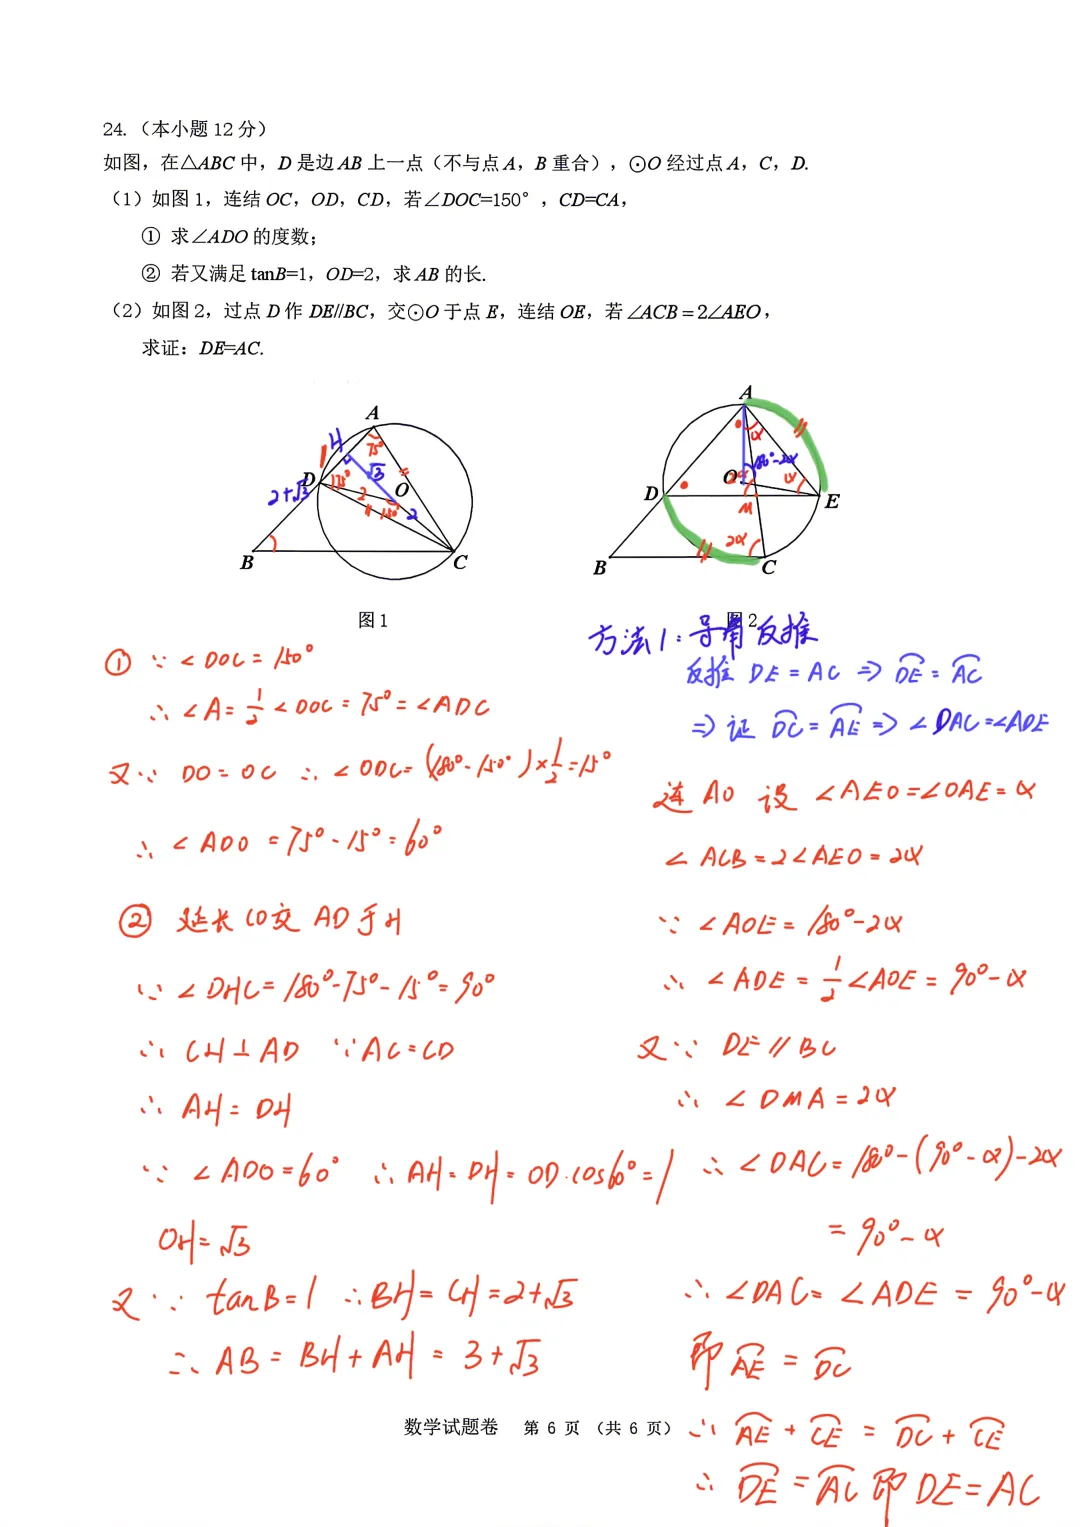 24.（本小题12分）
如图，在△ABC中，D是边AB上一点（不与点A，B重合），⊙O经过点A，C，D.
（1）如图1，连结OC，OD，CD，若∠DOC=150°，CD=CA，
① 求∠ADO的度数；
② 若又满足tanB=1，OD=2，求AB的长.
（2）如图2，过点D作DE//BC，交⊙O于点E，连结OE，若∠ACB=2∠AEO，
求证：DE=AC.
A
H
75°
1
D
√3
2
O
2+√3
150°
2
B
C
图1
A
α
180°-2α
O
α
D
M
E
2α
B
C
图2
① ∵∠DOC=150°
∴∠A=1/2∠DOC=75°=∠ADC
又∵ DO=OC ∴∠ODC=(180°-150°)×1/2=15°
∴∠ADO=75°-15°=60°
② 延长CO交AD于H
∵∠DHC=180°-75°-15°=90°
∴CH⊥AD ∵AC=CD
∴AH=DH
∵∠ADO=60° ∴AH=DH=OD·cos60°=1
OH=√3
又∵tanB=1 ∴BH=CH=2+√3
∴AB=BH+AH=3+√3
方法1：导角反推
反推 DE=AC ⇒ D͡E=A͡C
⇒证 D͡C=A͡E ⇒∠DAC=∠ADE
连AO 设∠AEO=∠OAE=α
∠ACB=2∠AEO=2α
∵∠AOE=180°-2α
∴∠ADE=1/2∠AOE=90°-α
又∵ DE∥BC
∴∠DMA=2α
∴∠DAC=180°-(90°-α)-2α
=90°-α
∴∠DAC=∠ADE=90°-α
即 A͡E=D͡C
∴A͡E+C͡E=D͡C+C͡E
∴D͡E=A͡C即DE=AC
数学试题卷 第 6 页 （共 6 页）